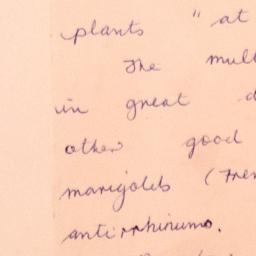 plants " at
The mult
in great d
other good
marigolds (Fren
antirrhinums.